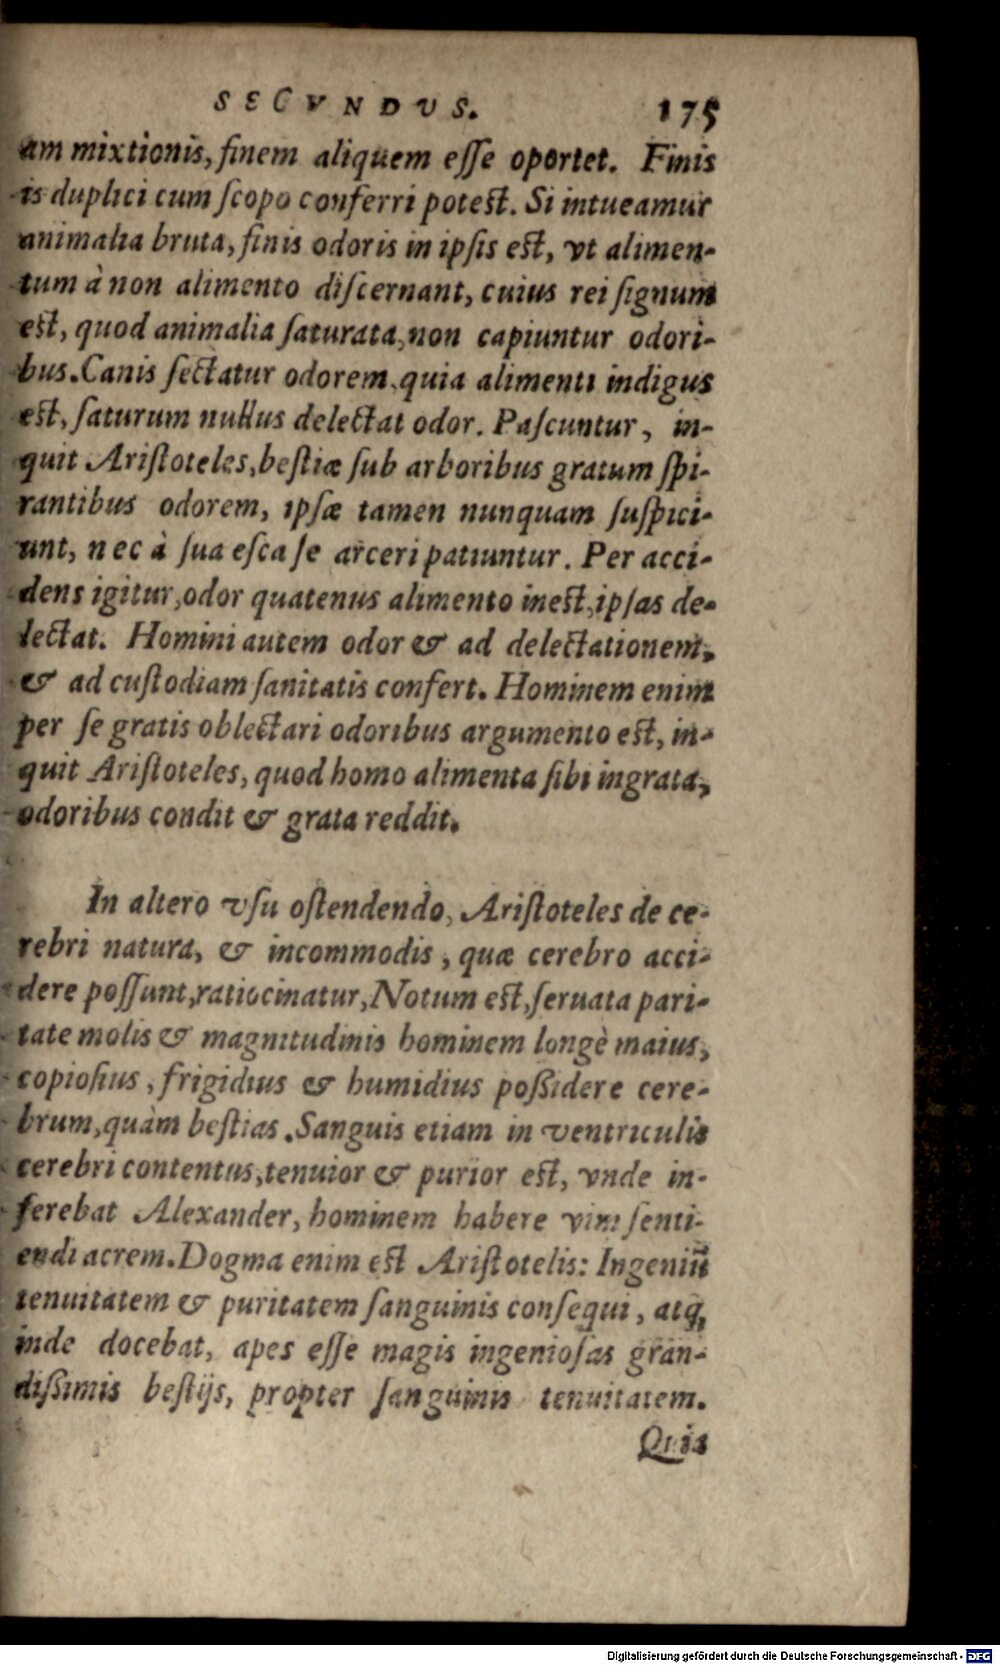 SECVNDVS. 175
am mixtionis, finem aliquem eſſe oportet. Finis
is duplici cum ſcopo conferri poteſt. Si intueamur
animalia bruta, finis odoris in ipſis eſt, vt alimen-
tum à non alimento diſcernant, cuius rei ſignum
eſt, quod animalia ſaturata, non capiuntur odori-
bus. Canis ſectatur odorem, quia alimenti indigus
eſt, ſaturum nullus delectat odor. Paſcuntur, in-
quit Ariſtoteles, beſtiæ ſub arboribus gratum ſpi-
rantibus odorem, ipſæ tamen nunquam ſuſpici-
unt, nec à ſua eſca ſe arceri patiuntur. Per acci-
dens igitur, odor quatenus alimento ineſt, ipſas de-
lectat. Homini autem odor & ad delectationem,
& ad cuſtodiam ſanitatis confert. Hominem enim
per ſe gratis oblectari odoribus argumento eſt, in-
quit Ariſtoteles, quod homo alimenta ſibi ingrata,
odoribus condit & grata reddit.
In altero vſu oſtendendo, Ariſtoteles de ce-
rebri natura, & incommodis, quæ cerebro acci-
dere poſſunt, ratiocinatur, Notum eſt, ſeruata pari-
tate molis & magnitudinis hominem longè maius,
copioſius, frigidius & humidius poßidere cere-
brum, quàm beſtias. Sanguis etiam in ventriculis
cerebri contentus, tenuior & purior eſt, vnde in-
ferebat Alexander, hominem habere vim ſenti-
endi acrem. Dogma enim eſt Ariſtotelis: Ingeniũ
tenuitatem & puritatem ſanguinis conſequi, atq;
inde docebat, apes eſſe magis ingenioſas gran-
dißimis beſtijs, propter ſanguinis tenuitatem.
Quis
Digitalisierung gefördert durch die Deutsche Forschungsgemeinschaft - DFG